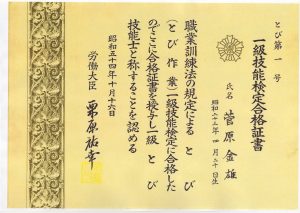 とび第一号
一級技能検定合格証書
氏名 菅原金雄
昭和二十二年四月二十日生
職業訓練法の規定による とび
(とび作業)一級技能検定に合格した
のでここに合格証書を授与し一級 とび
技能士と称することを認める
昭和五十四年十月十六日
労働大臣 栗原祐幸